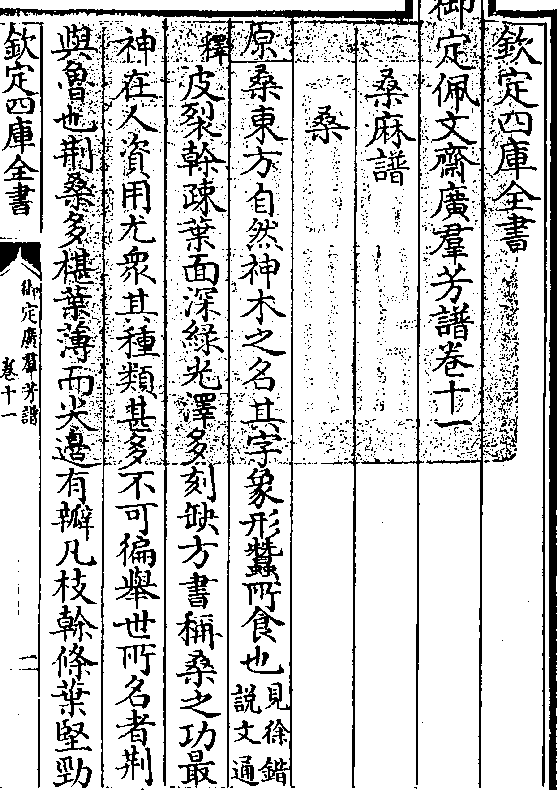 欽定四庫全書
御定佩文齋廣羣芳譜卷十一
桑麻譜
桑
原桑東方自然神木之名其字象形蠶所食也見徐鍇說文通
釋皮裂幹疎葉面深綠光澤多刻缺方書稱桑之功最
神在人資用尤衆其種類甚多不可徧舉世所名者荆
與魯也荆桑多椹葉薄而尖邊有瓣凡枝幹條葉堅勁
欽定四庫全書
御定廣羣芳譜
卷十一
一